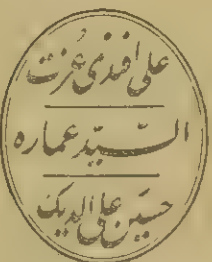 على افندى عزت
السيد عماره
حسين على الديك